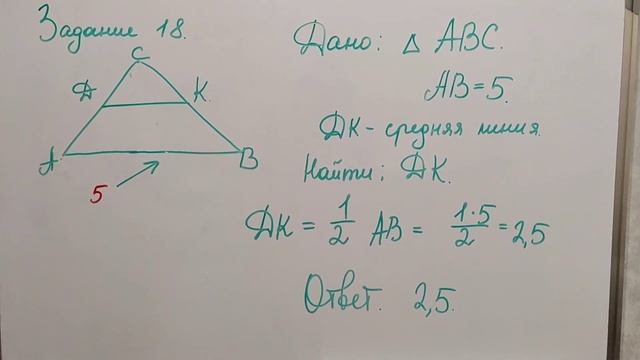 Задание 18.
C
Д K.
A B
5
Дано: Δ ABC.
AB=5.
ДК- средняя линия.
Найти: ДК.
ДК = 1/2 AB = 1·5/2 = 2,5
Ответ. 2,5.